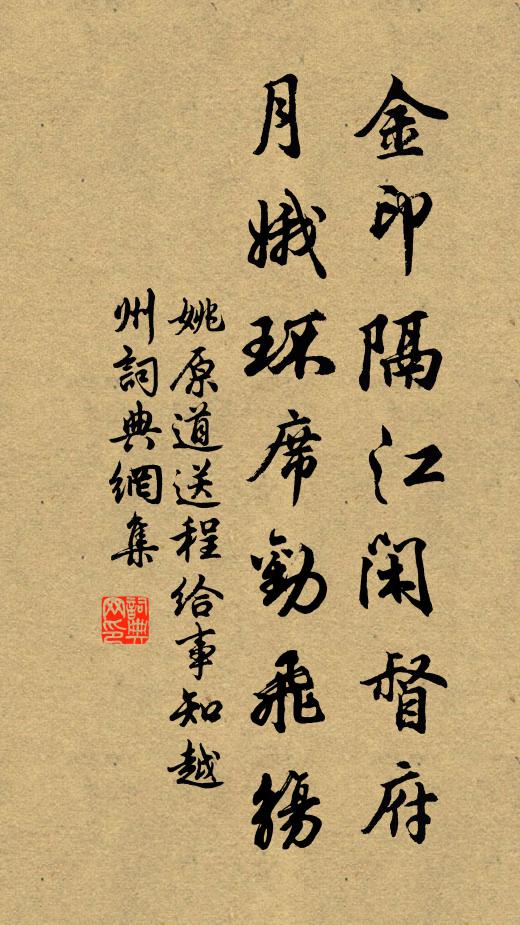 金印隔江闲督府
月娥环席劝飞觞
姚原道送程给事知越
州詞典網集
詞典
网印